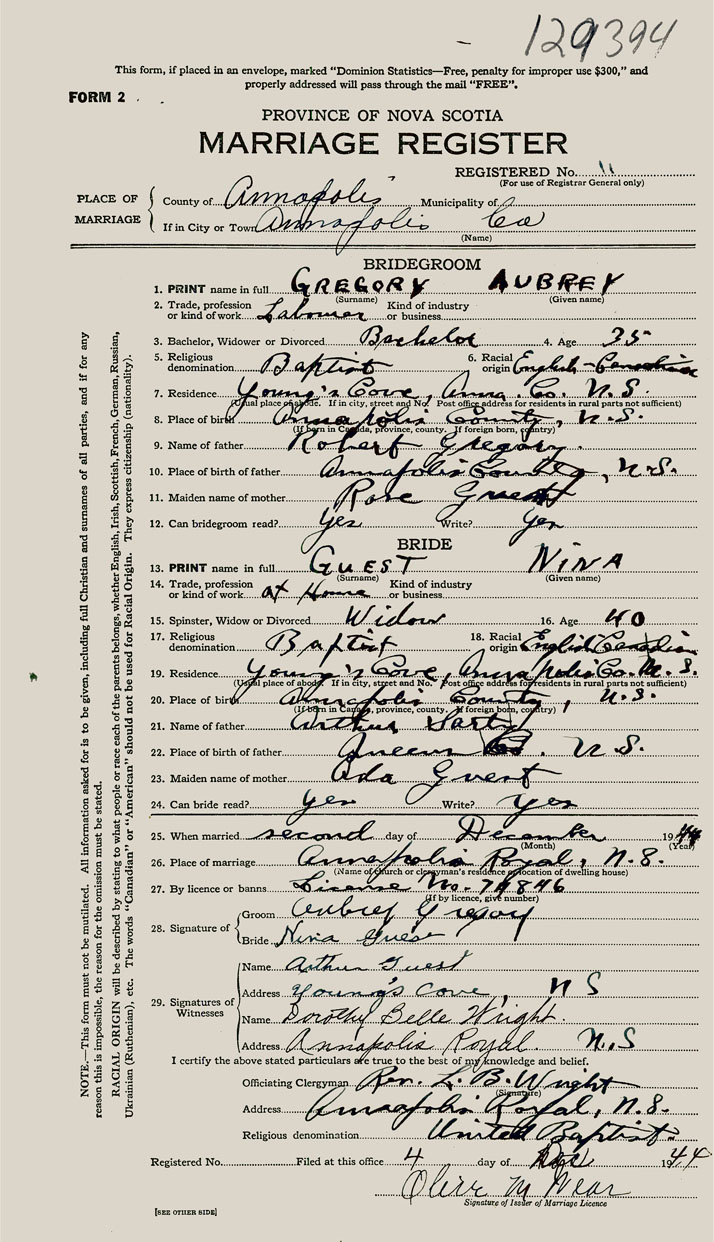 129394
This form, if placed in an envelope, marked "Dominion Statistics—Free, penalty for improper use $300," and
properly addressed will pass through the mail "FREE".
FORM 2
PROVINCE OF NOVA SCOTIA
MARRIAGE REGISTER
REGISTERED No. 11
(For use of Registrar General only)
PLACE OF MARRIAGE
County of Annapolis Municipality of
If in City or Town Annapolis Co
(Name)
BRIDEGROOM
1. PRINT name in full GREGORY AUBREY
(Surname) (Given name)
2. Trade, profession or kind of work Labourer Kind of industry or business
3. Bachelor, Widower or Divorced Bachelor 4. Age 35
5. Religious denomination Baptist 6. Racial origin English-Canadian
7. Residence Young's Cove, Anna. Co. N.S.
(Usual place of abode. If in city, street and No. Post office address for residents in rural parts not sufficient)
8. Place of birth Annapolis County, N.S.
(If born in Canada, province, county. If foreign born, country)
9. Name of father Robert Gregory
10. Place of birth of father Annapolis County, N.S.
11. Maiden name of mother Rose
12. Can bridegroom read? Yes Write? Yes
BRIDE
13. PRINT name in full GUEST NINA
(Surname) (Given name)
14. Trade, profession or kind of work at Home Kind of industry or business
15. Spinster, Widow or Divorced Widow 16. Age 40
17. Religious denomination Baptist 18. Racial origin English Canadian
19. Residence Young's Cove, Annapolis Co. N.S.
(Usual place of abode. If in city, street and No. Post office address for residents in rural parts not sufficient)
20. Place of birth Annapolis County, N.S.
(If born in Canada, province, county. If foreign born, country)
21. Name of father Arthur
22. Place of birth of father Queens Co. N.S.
23. Maiden name of mother Ada Guest
24. Can bride read? Yes Write? Yes
25. When married second day of December 1944
(Month) (Year)
26. Place of marriage Annapolis Royal, N.S.
(Name of church or clergyman's residence or location of dwelling house)
27. By licence or banns License No.
(If by licence, give number)
28. Signature of
Groom Aubrey Gregory
Bride Nina Guest
29. Signatures of Witnesses
Name Arthur Guest
Address Young's Cove, N S
Name Dorothy Belle Wright.
Address Annapolis Royal. N.S
I certify the above stated particulars are true to the best of my knowledge and belief.
Officiating Clergyman Rev. L. B. Wright
(Signature)
Address Annapolis Royal, N.S.
Religious denomination United Baptist
Registered No. Filed at this office 4 day of Dec 1944
Olive M
Signature of Issuer of Marriage Licence
[SEE OTHER SIDE]
NOTE.—This form must not be mutilated. All information asked for is to be given, including full Christian and surnames of all parties, and if for any
reason this is impossible, the reason for the omission must be stated.
RACIAL ORIGIN will be described by stating to what people or race each of the parents belongs, whether English, Irish, Scottish, French, German, Russian,
Ukrainian (Ruthenian), etc. The words "Canadian" or "American" should not be used for Racial Origin. They express citizenship (nationality).